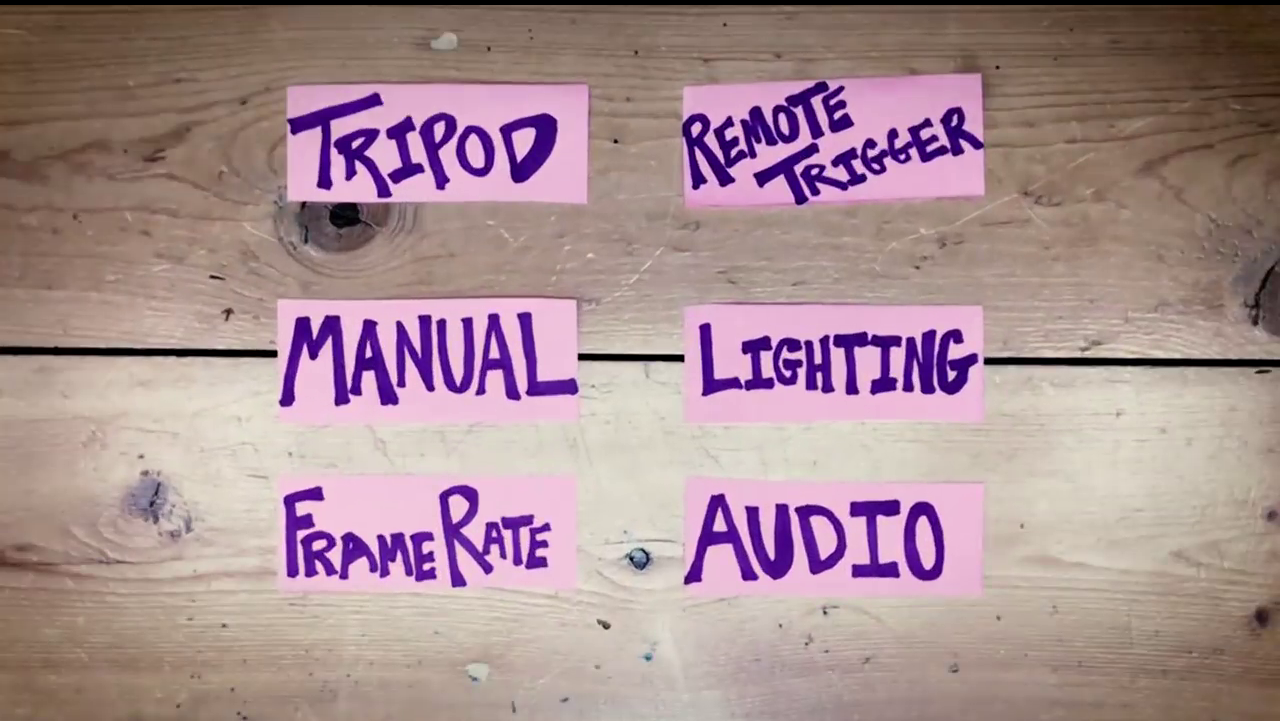 TRIPOD
REMOTE
TRIGGER
MANUAL
LIGHTING
FRAME RATE
AUDIO